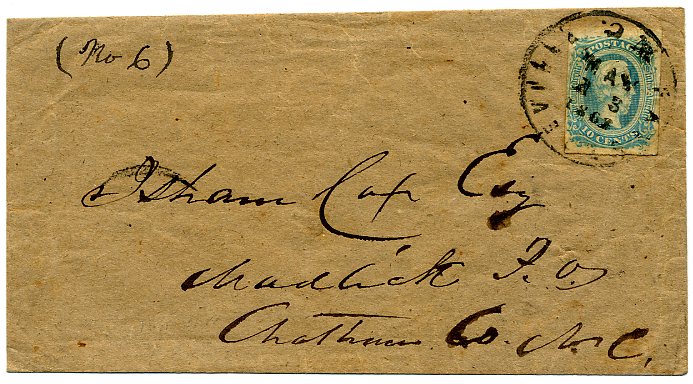 (No 6)
POSTAGE
MAY
3
10 CENTS
Isham Cox Esq
Mudlick P.O.
Chatham Co. N.C.